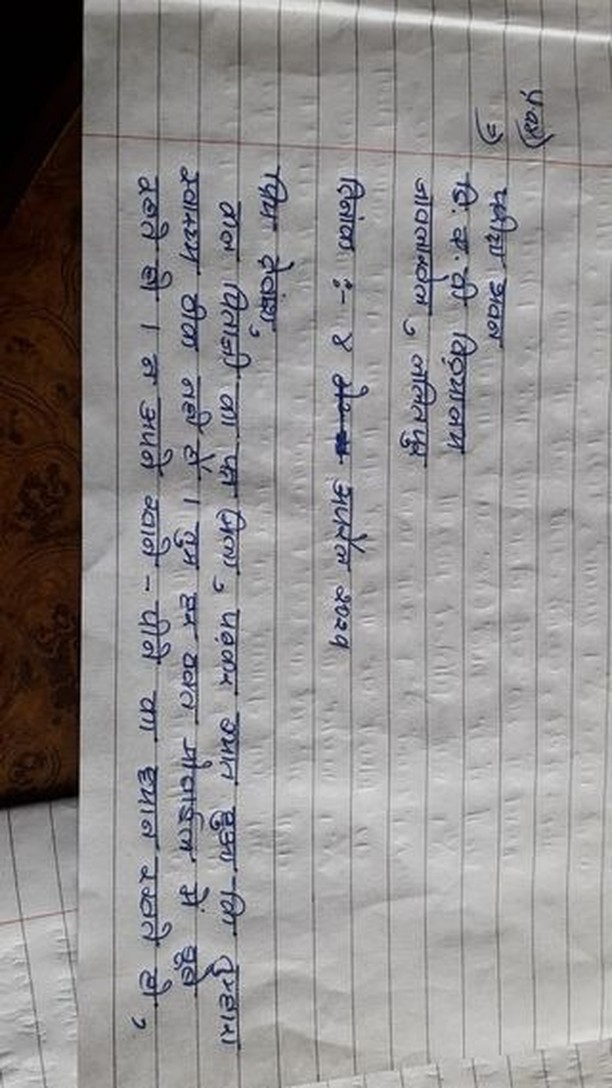 ५ (अ)
⇒ परीक्षा भवन
वि. क. वी विद्यालय
जावलाखेल, ललितपुर
दिनांक :- ४ अप्रैल २०२१
प्रिय देवांश,
कल पिताजी का पत्र मिला, पढ़कर ज्ञात हुआ कि तुम्हारा
स्वास्थ्य ठीक नही है। तुम हर वक्त मोबाईल में घुसे
रहते हो। न अपने खाने - पीने का ध्यान रखते हो,